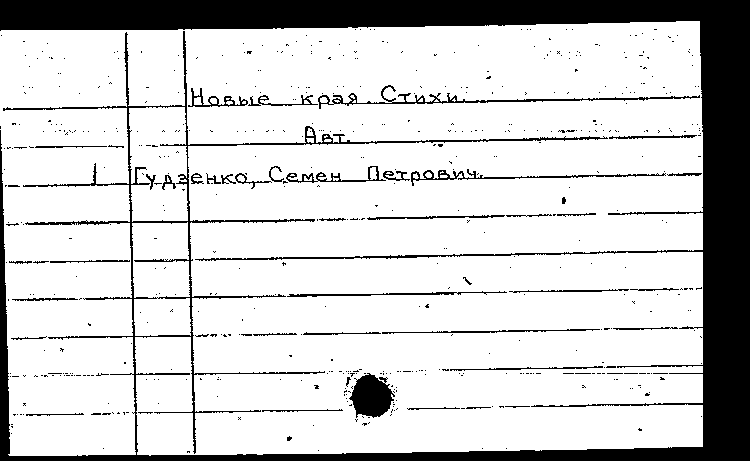 Новые края. Стихи.
Авт.
Гудзенко, Семен Петрович.